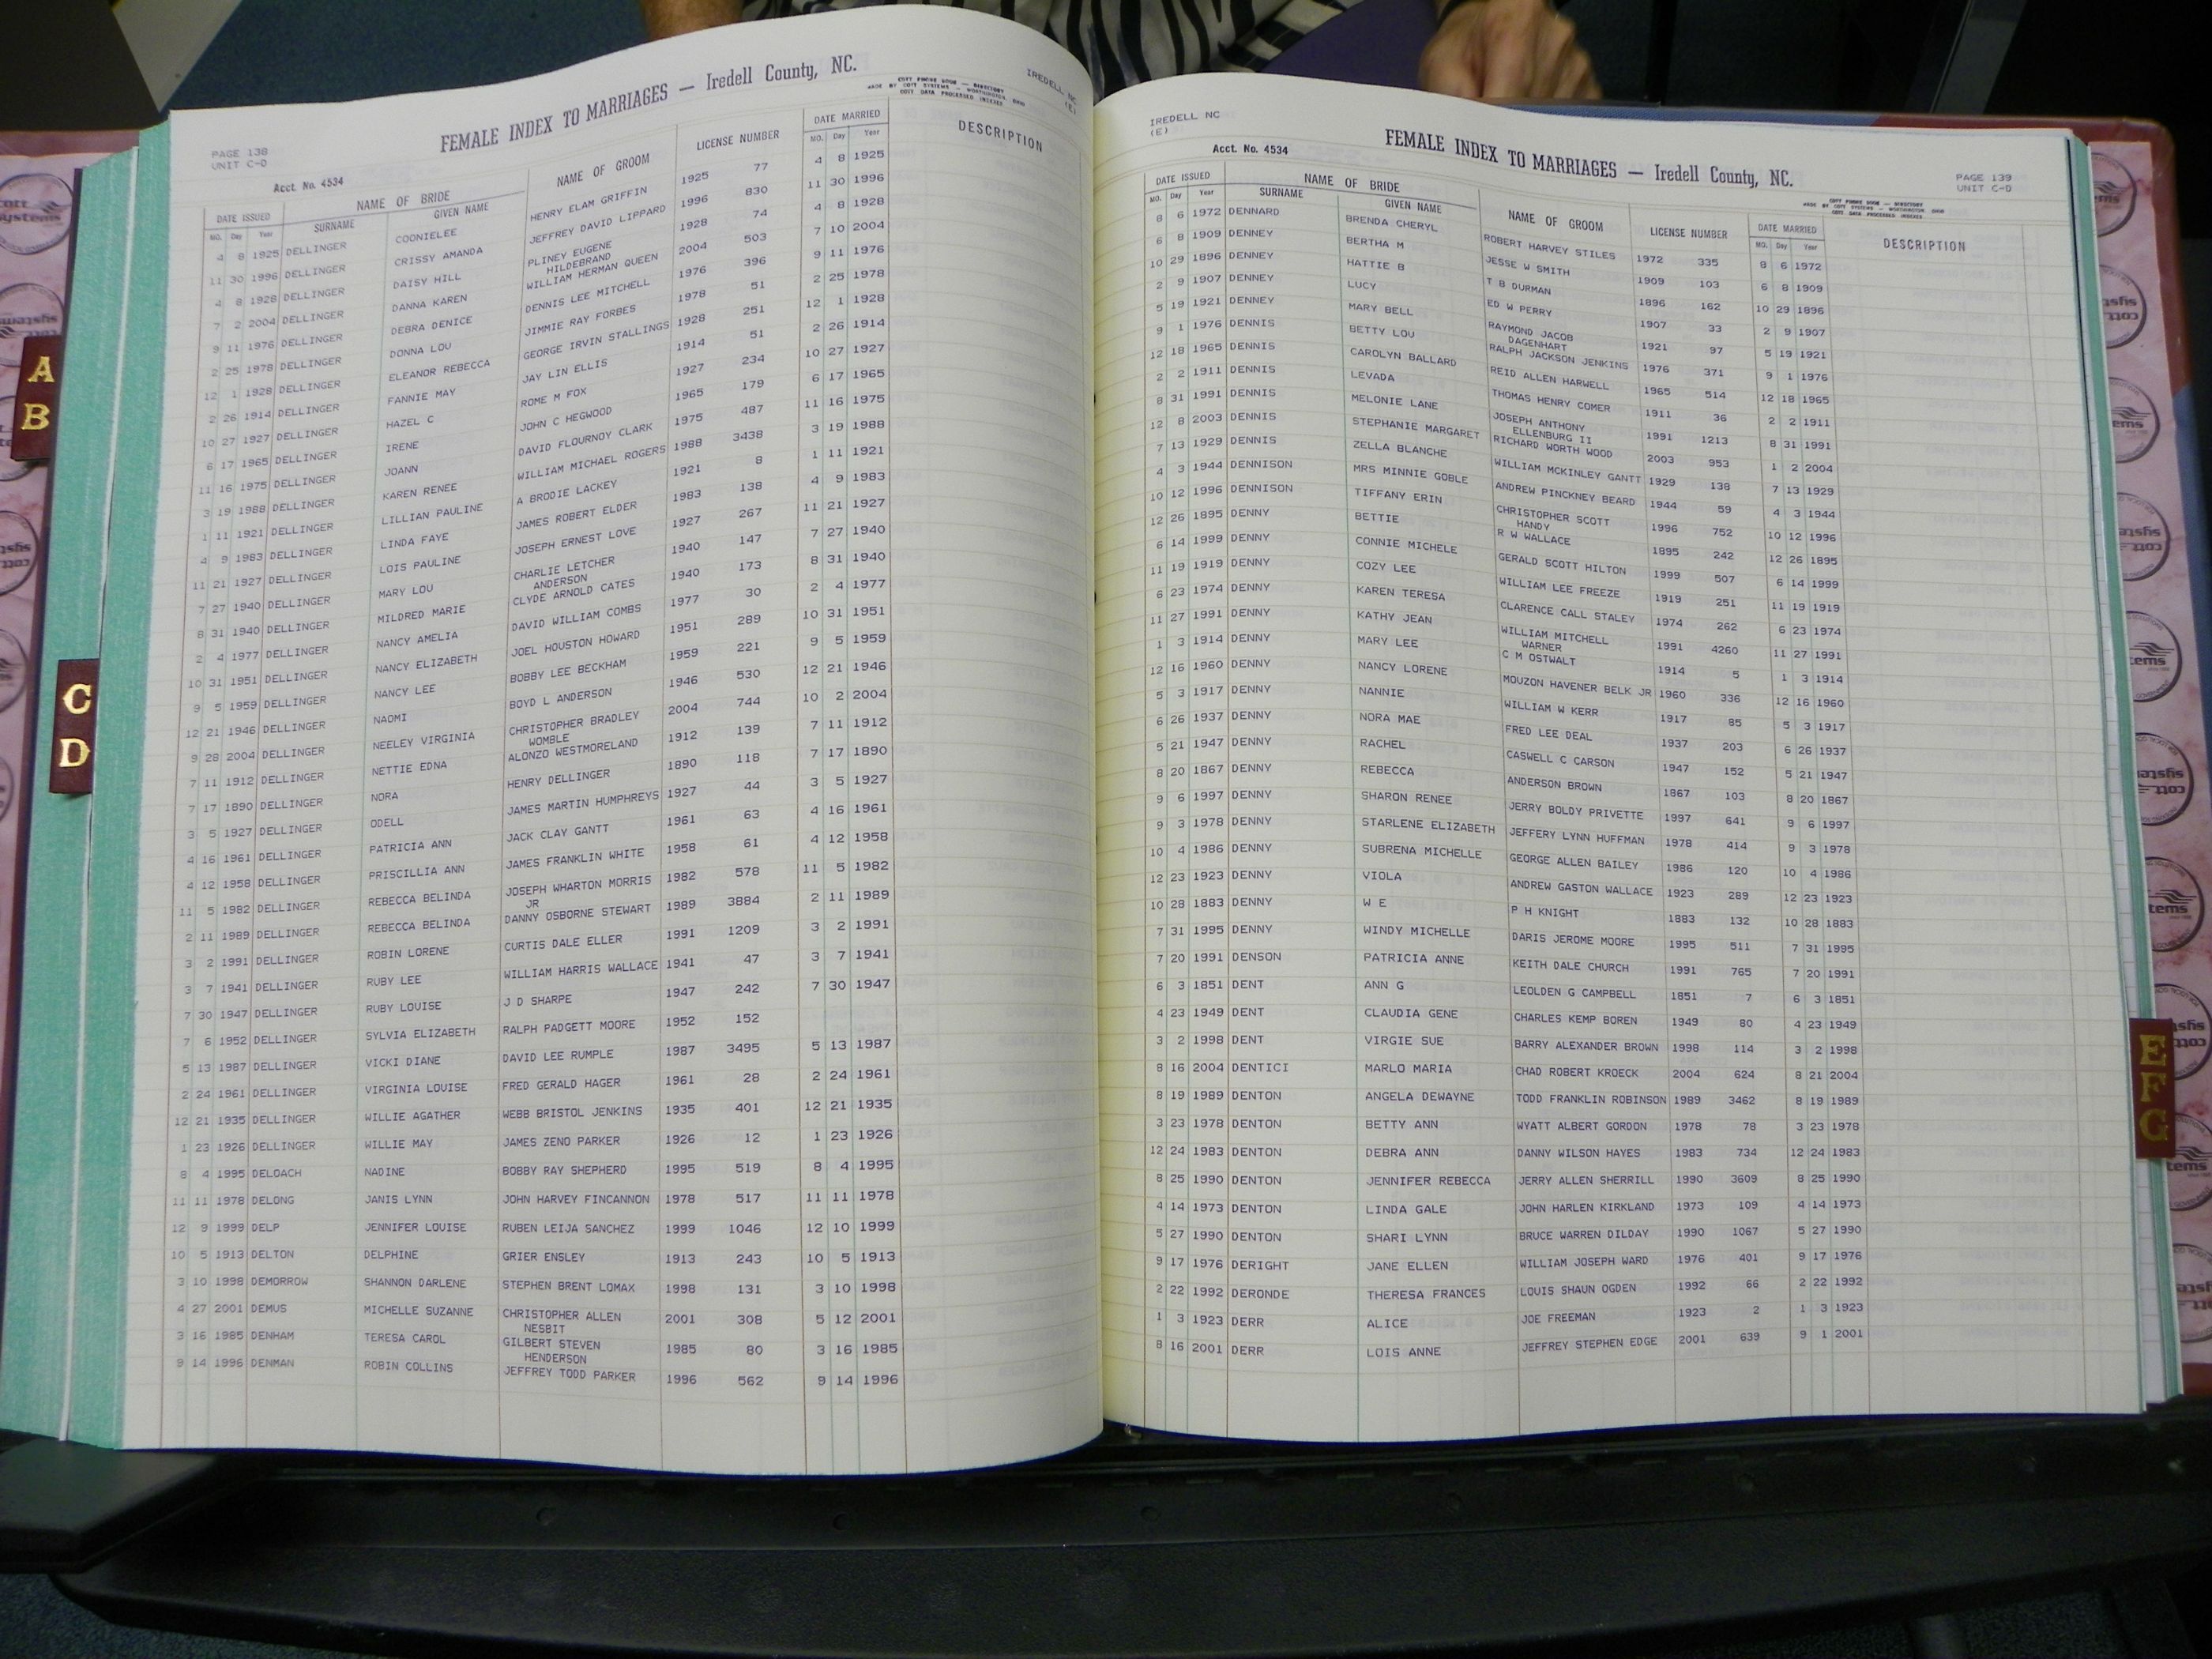 FEMALE INDEX TO MARRIAGES — Iredell County, NC.
IREDELL NC
(E)
COTT PHONE BOOK — DIRECTORY
MADE BY COTT SYSTEMS — WORTHINGTON, OHIO
COTT DATA PROCESSED INDEXES
PAGE 138
UNIT C-D
Acct. No. 4534
DATE ISSUED NAME OF BRIDE NAME OF GROOM LICENSE NUMBER DATE MARRIED DESCRIPTION
MO. Day Year SURNAME GIVEN NAME MO. Day Year
4 8 1925 DELLINGER COONIELEE HENRY ELAM GRIFFIN 1925 77 4 8 1925
11 30 1996 DELLINGER CRISSY AMANDA JEFFREY DAVID LIPPARD 1996 830 11 30 1996
4 8 1928 DELLINGER DAISY HILL PLINEY EUGENE 1928 74 4 8 1928
HILDEBRAND
7 2 2004 DELLINGER DANNA KAREN WILLIAM HERMAN QUEEN 2004 503 7 10 2004
9 11 1976 DELLINGER DEBRA DENICE DENNIS LEE MITCHELL 1976 396 9 11 1976
2 25 1978 DELLINGER DONNA LOU JIMMIE RAY FORBES 1978 51 2 25 1978
12 1 1928 DELLINGER ELEANOR REBECCA GEORGE IRVIN STALLINGS 1928 251 12 1 1928
2 26 1914 DELLINGER FANNIE MAY JAY LIN ELLIS 1914 51 2 26 1914
10 27 1927 DELLINGER HAZEL C ROME M FOX 1927 234 10 27 1927
6 17 1965 DELLINGER IRENE JOHN C HEGWOOD 1965 179 6 17 1965
11 16 1975 DELLINGER JOANN DAVID FLOURNOY CLARK 1975 487 11 16 1975
3 19 1988 DELLINGER KAREN RENEE WILLIAM MICHAEL ROGERS 1988 3438 3 19 1988
1 11 1921 DELLINGER LILLIAN PAULINE A BRODIE LACKEY 1921 8 1 11 1921
4 9 1983 DELLINGER LINDA FAYE JAMES ROBERT ELDER 1983 138 4 9 1983
11 21 1927 DELLINGER LOIS PAULINE JOSEPH ERNEST LOVE 1927 267 11 21 1927
7 27 1940 DELLINGER MARY LOU CHARLIE LETCHER 1940 147 7 27 1940
ANDERSON
8 31 1940 DELLINGER MILDRED MARIE CLYDE ARNOLD CATES 1940 173 8 31 1940
2 4 1977 DELLINGER NANCY AMELIA DAVID WILLIAM COMBS 1977 30 2 4 1977
10 31 1951 DELLINGER NANCY ELIZABETH JOEL HOUSTON HOWARD 1951 289 10 31 1951
9 5 1959 DELLINGER NANCY LEE BOBBY LEE BECKHAM 1959 221 9 5 1959
12 21 1946 DELLINGER NAOMI BOYD L ANDERSON 1946 530 12 21 1946
9 28 2004 DELLINGER NEELEY VIRGINIA CHRISTOPHER BRADLEY 2004 744 10 2 2004
WOMBLE
7 11 1912 DELLINGER NETTIE EDNA ALONZO WESTMORELAND 1912 139 7 11 1912
7 17 1890 DELLINGER NORA HENRY DELLINGER 1890 118 7 17 1890
3 5 1927 DELLINGER ODELL JAMES MARTIN HUMPHREYS 1927 44 3 5 1927
4 16 1961 DELLINGER PATRICIA ANN JACK CLAY GANTT 1961 63 4 16 1961
4 12 1958 DELLINGER PRISCILLIA ANN JAMES FRANKLIN WHITE 1958 61 4 12 1958
11 5 1982 DELLINGER REBECCA BELINDA JOSEPH WHARTON MORRIS 1982 578 11 5 1982
JR
2 11 1989 DELLINGER REBECCA BELINDA DANNY OSBORNE STEWART 1989 3884 2 11 1989
3 2 1991 DELLINGER ROBIN LORENE CURTIS DALE ELLER 1991 1209 3 2 1991
3 7 1941 DELLINGER RUBY LEE WILLIAM HARRIS WALLACE 1941 47 3 7 1941
7 30 1947 DELLINGER RUBY LOUISE J D SHARPE 1947 242 7 30 1947
7 6 1952 DELLINGER SYLVIA ELIZABETH RALPH PADGETT MOORE 1952 152
5 13 1987 DELLINGER VICKI DIANE DAVID LEE RUMPLE 1987 3495 5 13 1987
2 24 1961 DELLINGER VIRGINIA LOUISE FRED GERALD HAGER 1961 28 2 24 1961
12 21 1935 DELLINGER WILLIE AGATHER WEBB BRISTOL JENKINS 1935 401 12 21 1935
1 23 1926 DELLINGER WILLIE MAY JAMES ZENO PARKER 1926 12 1 23 1926
8 4 1995 DELOACH NADINE BOBBY RAY SHEPHERD 1995 519 8 4 1995
11 11 1978 DELONG JANIS LYNN JOHN HARVEY FINCANNON 1978 517 11 11 1978
12 9 1999 DELP JENNIFER LOUISE RUBEN LEIJA SANCHEZ 1999 1046 12 10 1999
10 5 1913 DELTON DELPHINE GRIER ENSLEY 1913 243 10 5 1913
3 10 1998 DEMORROW SHANNON DARLENE STEPHEN BRENT LOMAX 1998 131 3 10 1998
4 27 2001 DEMUS MICHELLE SUZANNE CHRISTOPHER ALLEN 2001 308 5 12 2001
NESBIT
3 16 1985 DENHAM TERESA CAROL GILBERT STEVEN 1985 80 3 16 1985
HENDERSON
9 14 1996 DENMAN ROBIN COLLINS JEFFREY TODD PARKER 1996 562 9 14 1996
IREDELL NC
(E)
Acct. No. 4534
FEMALE INDEX TO MARRIAGES — Iredell County, NC.
PAGE 139
UNIT C-D
COTT PHONE BOOK — DIRECTORY
MADE BY COTT SYSTEMS — WORTHINGTON, OHIO
COTT DATA PROCESSED INDEXES
DATE ISSUED NAME OF BRIDE NAME OF GROOM LICENSE NUMBER DATE MARRIED DESCRIPTION
MO. Day Year SURNAME GIVEN NAME MO. Day Year
8 6 1972 DENNARD BRENDA CHERYL ROBERT HARVEY STILES 1972 335 8 6 1972
6 8 1909 DENNEY BERTHA M JESSE W SMITH 1909 103 6 8 1909
10 29 1896 DENNEY HATTIE B T B DURMAN 1896 162 10 29 1896
2 9 1907 DENNEY LUCY ED W PERRY 1907 33 2 9 1907
5 19 1921 DENNEY MARY BELL RAYMOND JACOB 1921 97 5 19 1921
DAGENHART
9 1 1976 DENNIS BETTY LOU RALPH JACKSON JENKINS 1976 371 9 1 1976
12 18 1965 DENNIS CAROLYN BALLARD REID ALLEN HARWELL 1965 514 12 18 1965
2 2 1911 DENNIS LEVADA THOMAS HENRY COMER 1911 36 2 2 1911
8 31 1991 DENNIS MELONIE LANE JOSEPH ANTHONY 1991 1213 8 31 1991
ELLENBURG II
12 8 2003 DENNIS STEPHANIE MARGARET RICHARD WORTH WOOD 2003 953 1 2 2004
7 13 1929 DENNIS ZELLA BLANCHE WILLIAM MCKINLEY GANTT 1929 138 7 13 1929
4 3 1944 DENNISON MRS MINNIE GOBLE ANDREW PINCKNEY BEARD 1944 59 4 3 1944
10 12 1996 DENNISON TIFFANY ERIN CHRISTOPHER SCOTT 1996 752 10 12 1996
HANDY
12 26 1895 DENNY BETTIE R W WALLACE 1895 242 12 26 1895
6 14 1999 DENNY CONNIE MICHELE GERALD SCOTT HILTON 1999 507 6 14 1999
11 19 1919 DENNY COZY LEE WILLIAM LEE FREEZE 1919 251 11 19 1919
6 23 1974 DENNY KAREN TERESA CLARENCE CALL STALEY 1974 262 6 23 1974
11 27 1991 DENNY KATHY JEAN WILLIAM MITCHELL 1991 4260 11 27 1991
WARNER
1 3 1914 DENNY MARY LEE C M OSTWALT 1914 5 1 3 1914
12 16 1960 DENNY NANCY LORENE MOUZON HAVENER BELK JR 1960 336 12 16 1960
5 3 1917 DENNY NANNIE WILLIAM W KERR 1917 85 5 3 1917
6 26 1937 DENNY NORA MAE FRED LEE DEAL 1937 203 6 26 1937
5 21 1947 DENNY RACHEL CASWELL C CARSON 1947 152 5 21 1947
8 20 1867 DENNY REBECCA ANDERSON BROWN 1867 103 8 20 1867
9 6 1997 DENNY SHARON RENEE JERRY BOLDY PRIVETTE 1997 641 9 6 1997
9 3 1978 DENNY STARLENE ELIZABETH JEFFERY LYNN HUFFMAN 1978 414 9 3 1978
10 4 1986 DENNY SUBRENA MICHELLE GEORGE ALLEN BAILEY 1986 120 10 4 1986
12 23 1923 DENNY VIOLA ANDREW GASTON WALLACE 1923 289 12 23 1923
10 28 1883 DENNY W E P H KNIGHT 1883 132 10 28 1883
7 31 1995 DENNY WINDY MICHELLE DARIS JEROME MOORE 1995 511 7 31 1995
7 20 1991 DENSON PATRICIA ANNE KEITH DALE CHURCH 1991 765 7 20 1991
6 3 1851 DENT ANN G LEOLDEN G CAMPBELL 1851 7 6 3 1851
4 23 1949 DENT CLAUDIA GENE CHARLES KEMP BOREN 1949 80 4 23 1949
3 2 1998 DENT VIRGIE SUE BARRY ALEXANDER BROWN 1998 114 3 2 1998
8 16 2004 DENTICI MARLO MARIA CHAD ROBERT KROECK 2004 624 8 21 2004
8 19 1989 DENTON ANGELA DEWAYNE TODD FRANKLIN ROBINSON 1989 3462 8 19 1989
3 23 1978 DENTON BETTY ANN WYATT ALBERT GORDON 1978 78 3 23 1978
12 24 1983 DENTON DEBRA ANN DANNY WILSON HAYES 1983 734 12 24 1983
8 25 1990 DENTON JENNIFER REBECCA JERRY ALLEN SHERRILL 1990 3609 8 25 1990
4 14 1973 DENTON LINDA GALE JOHN HARLEN KIRKLAND 1973 109 4 14 1973
5 27 1990 DENTON SHARI LYNN BRUCE WARREN DILDAY 1990 1067 5 27 1990
9 17 1976 DERIGHT JANE ELLEN WILLIAM JOSEPH WARD 1976 401 9 17 1976
2 22 1992 DERONDE THERESA FRANCES LOUIS SHAUN OGDEN 1992 66 2 22 1992
1 3 1923 DERR ALICE JOE FREEMAN 1923 2 1 3 1923
8 16 2001 DERR LOIS ANNE JEFFREY STEPHEN EDGE 2001 639 9 1 2001
A
B
C
D
E
F
G
cott
systems